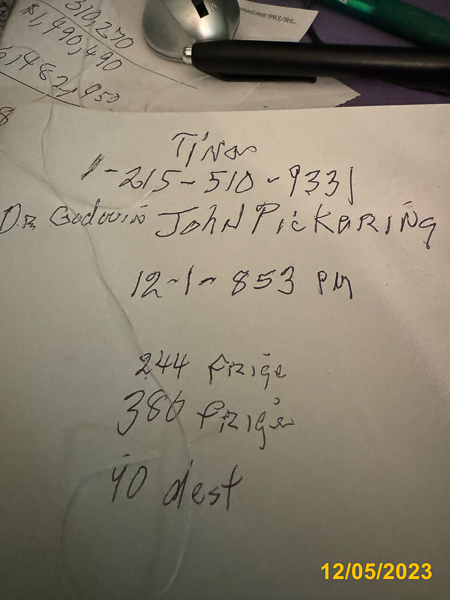 310,270
$1,490,490
1,482,950
8
Tina
1-215-510-9331
DR Godwin John Pickering
12-1-853 PM
244 frige
386 frige
40 dest
12/05/2023